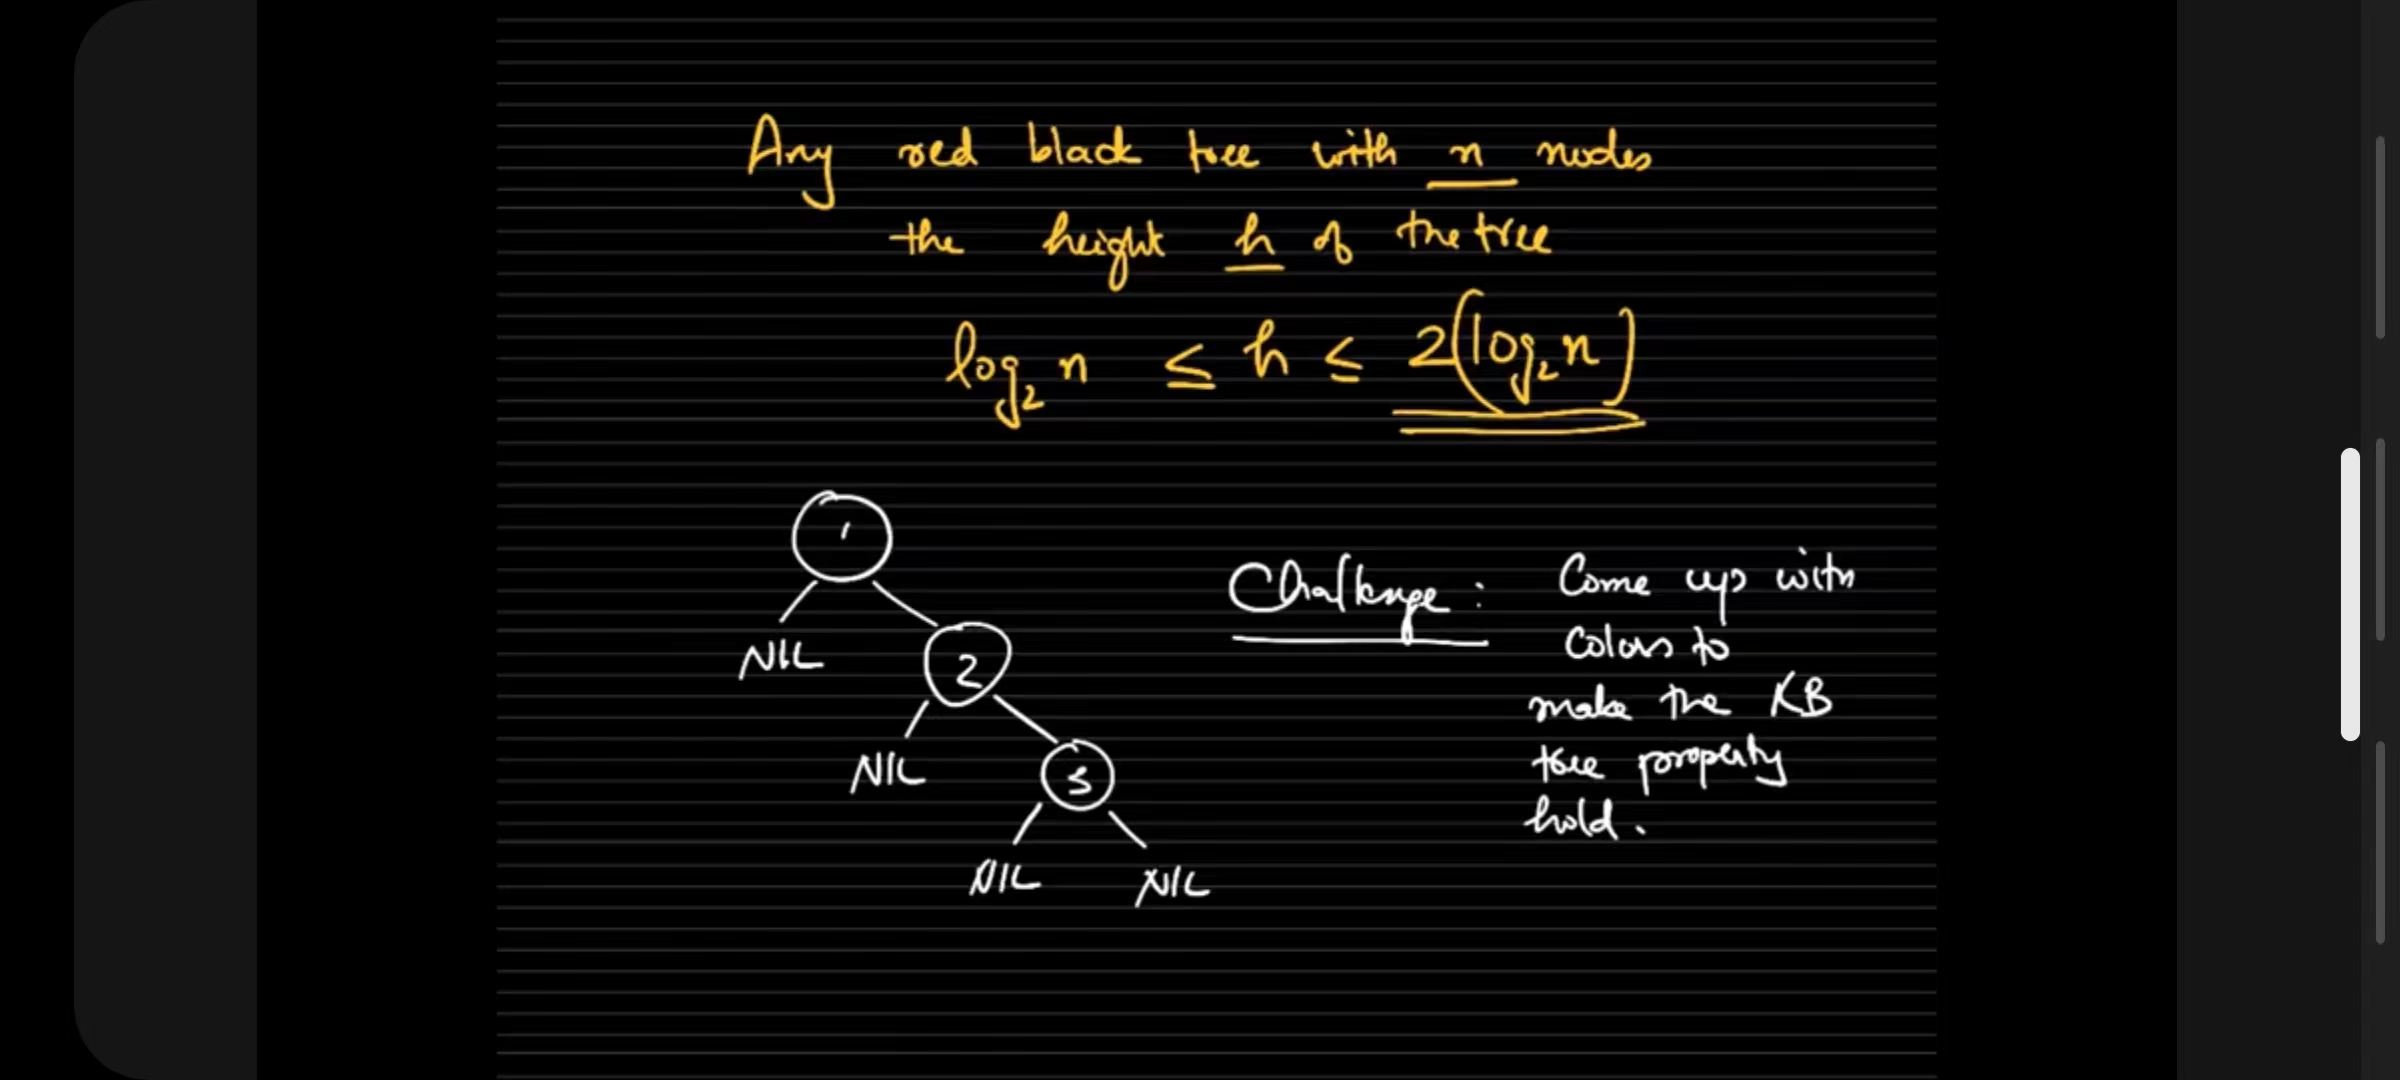 Any red black tree with n nodes
the height h of the tree
log₂ n ≤ h ≤ 2(log₂ n)
1
NIL
2
NIL
3
NIL NIL
Challenge: Come up with
Colors to
make the RB
tree property
hold.